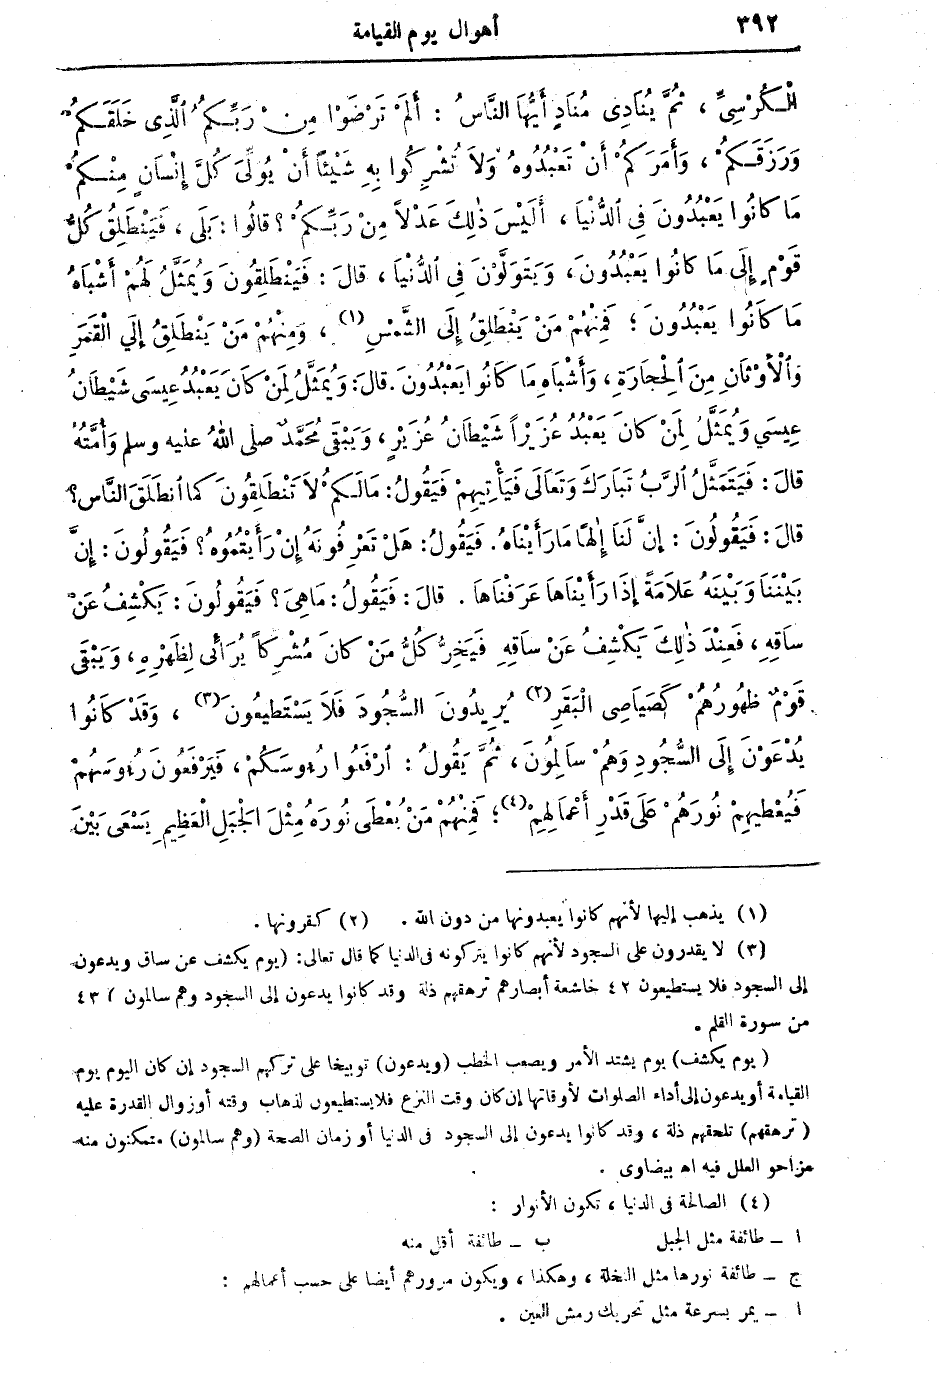 ٣٩٢
أهوال يوم القيامة
الْكُرْسِيِّ ، ثُمَّ يُنَادِى مُنَادٍ أَيُّهَا النَّاسُ : أَلَمْ تَرْضَوْا مِنْ رَبِّكُمُ الَّذِى خَلَقَكُمْ
وَرَزَقَكُمْ ، وَأَمَرَكُمْ أَنْ تَعْبُدُوهُ وَلَا تُشْرِكُوا بِهِ شَيْئًا أَنْ يُوَلِّىَ كُلَّ إِنْسَانٍ مِنْكُمْ
مَا كَانُوا يَعْبُدُونَ فِى الدُّنْيَا ، أَلَيْسَ ذٰلِكَ عَدْلاً مِنْ رَبِّكُمْ ؟ قَالُوا : بَلَى ، فَيَنْطَلِقُ كُلُّ
قَوْمٍ إِلَى مَا كَانُوا يَعْبُدُونَ، وَيَتَوَلَّوْنَ فِى الدُّنْيَا ، قَالَ : فَيَنْطَلِقُونَ وَيُمَثَّلُ لَهُمْ أَشْبَاهُ
مَا كَانُوا يَعْبُدُونَ ؛ فَمِنْهُمْ مَنْ يَنْطَلِقُ إِلَى الشَّمْسِ (١) ، وَمِنْهُمْ مَنْ يَنْطَلِقُ إِلَي الْقَمَرِ
وَالْأَوْثَانِ مِنَ الْحِجَارَةِ ، وَأَشْبَاهِ مَا كَانُوا يَعْبُدُونَ . قَالَ : وَيُمَثَّلُ لِمَنْ كَانَ يَعْبُدُ عِيسَى شَيْطَانُ
عِيسَي وَيُمَثَّلُ لِمَنْ كَانَ يَعْبُدُ عُزَيْراً شَيْطَانُ عُزَيْرٍ ، وَيَبْقَى مُحَمَّدٌ صلى اللهُ عليه وسلم وَأُمَّتُهُ
قَالَ : فَيَتَمَثَّلُ الرَّبُّ تَبَارَكَ وَتَعَالَى فَيَأْتِيهِمْ فَيَقُولُ : مَالَكُمْ لَا تَنْطَلِقُونَ كَمَا انْطَلَقَ النَّاس ؟
قَالَ : فَيَقُولُونَ : إِنَّ لَنَا إِلٰهًا مَا رَأَيْنَاهُ. فَيَقُولُ : هَلْ تَعْرِفُونَهُ إِنْ رَأَيْتُمُوهُ ؟ فَيَقُولُونَ : إِنَّ
بَيْنَنَا وَبَيْنَهُ عَلَامَةً إِذَا رَأَيْنَاهَا عَرَفْنَاهَا . قَالَ : فَيَقُولُ : مَاهِىَ ؟ فَيَقُولُونَ : يَكْشِفُ عَنْ
سَاقِهِ ، فَعِنْدَ ذٰلِكَ يَكْشِفُ عَنْ سَاقِهِ فَيَخِرُّ كُلُّ مَنْ كَانَ مُشْرِكاً يُرَائِى لِظَهْرِهِ ، وَيَبْقَى
قَوْمٌ ظُهُورُهُمْ كَصَيَاصِى الْبَقَرِ (٢) يُرِيدُونَ السُّجُودَ فَلَا يَسْتَطِيعُونَ (٣) ، وَقَدْ كَانُوا
يُدْعَوْنَ إِلَى السُّجُودِ وَهُمْ سَالِمُونَ ، ثُمَّ يَقُولُ : ارْفَعُوا رُءوسَكُمْ ، فَيَرْفَعُونَ رُءوسَهُمْ
فَيُعْطِيهِمْ نُورَهُمْ عَلَى قَدْرِ أَعْمَالِهِمْ (٤) ؛ فَمِنْهُمْ مَنْ يُعْطَى نُورَهُ مِثْلَ الْجَبَلِ الْعَظِيمِ يَسْعَى بَيْنَ
(١) يذهب إليها لأنهم كانوا يعبدونها من دون الله . (٢) كقرونها .
(٣) لا يقدرون على السجود لأنهم كانوا يتركونه فى الدنيا كما قال تعالى : (يوم يكشف عن ساق ويدعون
إلى السجود فلا يستطيعون ٤٢ خاشعة أبصارهم ترهقهم ذلة وقد كانوا يدعون إلى السجود وهم سالمون ) ٤٣
من سورة القلم .
( يوم يكشف) يوم يشتد الأمر ويصعب الخطب (ويدعون) توبيخا على تركهم السجود إن كان اليوم يوم
القيامة أو يدعون إلى أداء الصلوات لأوقاتها إن كان وقت النزع فلا يستطيعون لذهاب وقته أو زوال القدرة عليه
( ترهقهم) تلحقهم ذلة ، وقد كانوا يدعون إلى السجود فى الدنيا أو زمان الصحة (وهم سالمون) متمكنون منه
مزاحو العلل فيه اه بيضاوى .
(٤) الصالحة فى الدنيا ، تكون الأنوار :
ا ــ طائفة مثل الجبل ب ــ طائفة أقل منه
ج ــ طائفة نورها مثل النخلة ، وهكذا ، ويكون مرورهم أيضا على حسب أعمالهم :
ا ــ يمر بسرعة مثل تحريك رمش العين .